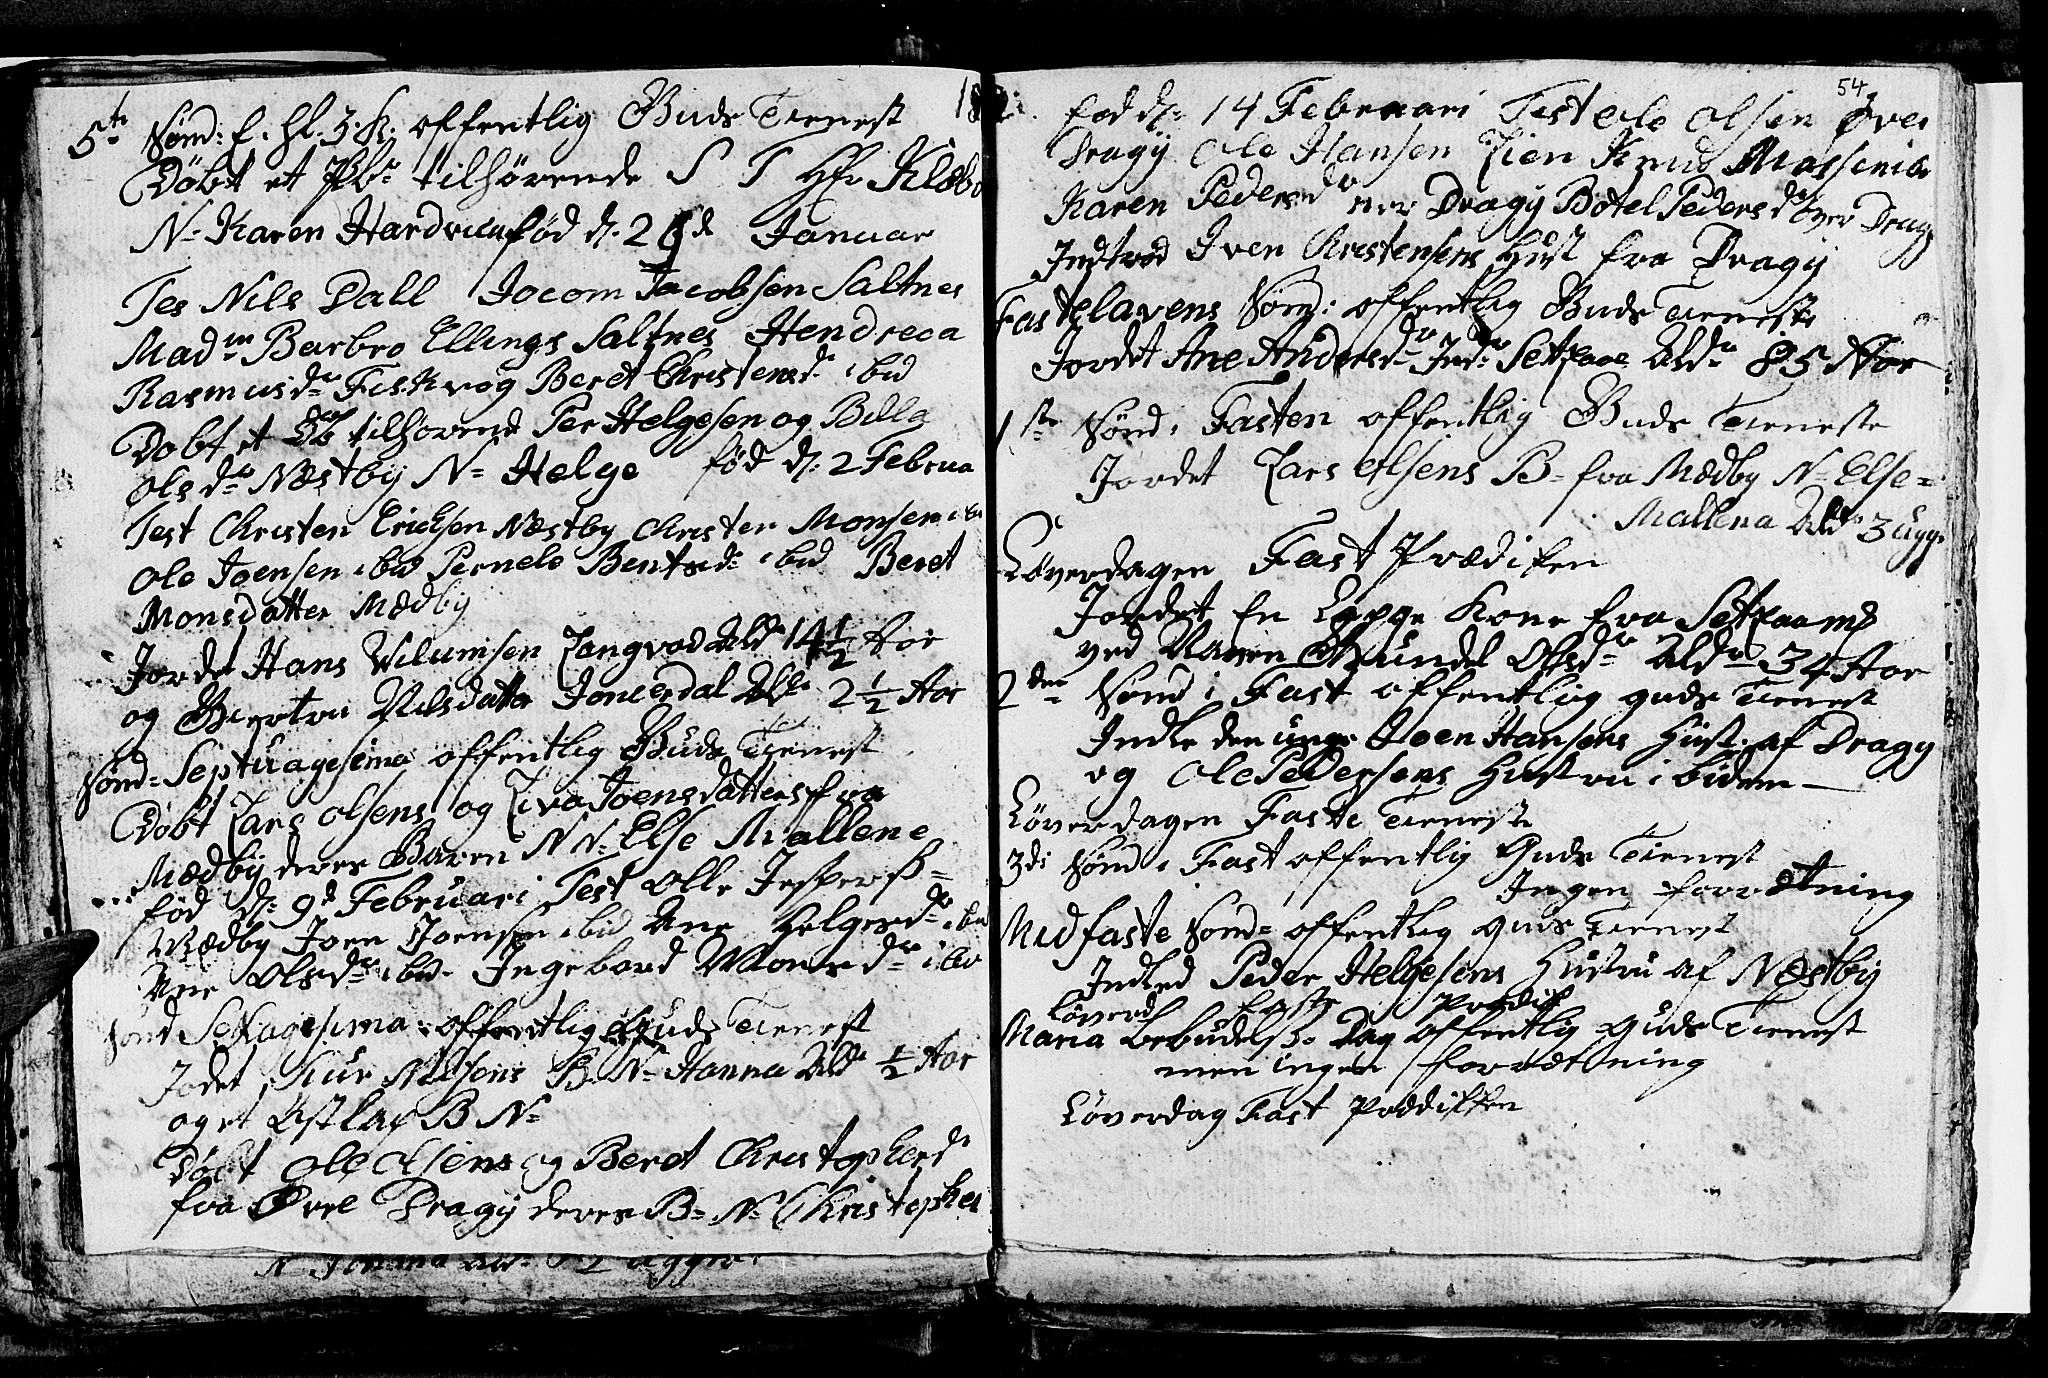 5te Sønd: E. Hl. 3. K. offentlig Guds Tienest
Døbt et Pb: tilhørende S T Hr Klæbo
N: Karen Hardvica fød d: 29de Januar
Tes Nils Dall Jocom Jacobsen Saltnes
Madm Barbro Ellings Saltnes Hendreca
Rasmusdr Fiskvog Beret Christensdr ibid
Døbt et tilhørende Per Helgesen og
Olsdr Næstby N: Helge fød d: 2 Februa
Test Christen Ericksen Næstby Christen Monsen ibi
Ole Joensen ibid Pernele Bentsdr ibid Beret
Monsdatter Mædby
Jordet Hans Wilumsen Langvad Aldr 14 1/2 Aar
og Nilsdatter Aldr 2 1/2 Aar
Sønd: Septuagesima offentlig Guds Tienest
Døbt Lars Olsens og Joensdatters fra
Mædby deres Baren N N: Else Mallene
fød d: 9d Februari Test Olle Jesperß=
Mædby Joen Joensen ibid Ane Helgesdr ibid
Ane Olsdr ibid Ingebord Monsdr ibid
Sønd Sexagesima offentlig Guds Tienest
Jodet Nilsens B. N: Hanna Aldr 1/2 Aar
og et B N:
Døbt Ole Olsens og Beret Christopherd
fra Øvre Dragy deres B: N: Christopher
N Aldr uger
54
fød d: 14 Februari Test Ole Olsen Øver
Dragy Ole Hansen Lien Knud
Karen Pedersdr Dragy Botel Pedersdr over Dragy
Indtrod Iven Christensens Hust fra Dragy
Fastelavens Sønd: offentlig Guds Tieneste
Jordet Ane Andersdr Aldr 85 Aar
1ste Sønd i Fasten offentlig Guds Tieneste
Jordet Lars Olsens B= fra Mædby N: Else=
Mallena Aldr 3 uger
Løverdagen Fast Prædiken
Jordet En Kone fra
ved Navn Gundel Olsdr Aldr 34 Aar
2den Sønd i Fast offentlig Guds Tienest
Indle den unge Joen Hansens Hust: af Dragy
og Ole Pedersens Hustru ibidem
Løverdagen Faste Tieneste
3di Sønd i Fast offentlig Guds Tienest
Ingen Forrætning
Midfaste Sønd= offentlig Guds Tienest
Indled Peder Helgesens Hustru af Næstby
Løverd Faste Prædik
Maria Bebudelß: Dag offentlig Guds Tienest
men ingen forrætning
Løverdag Fast Prædicken